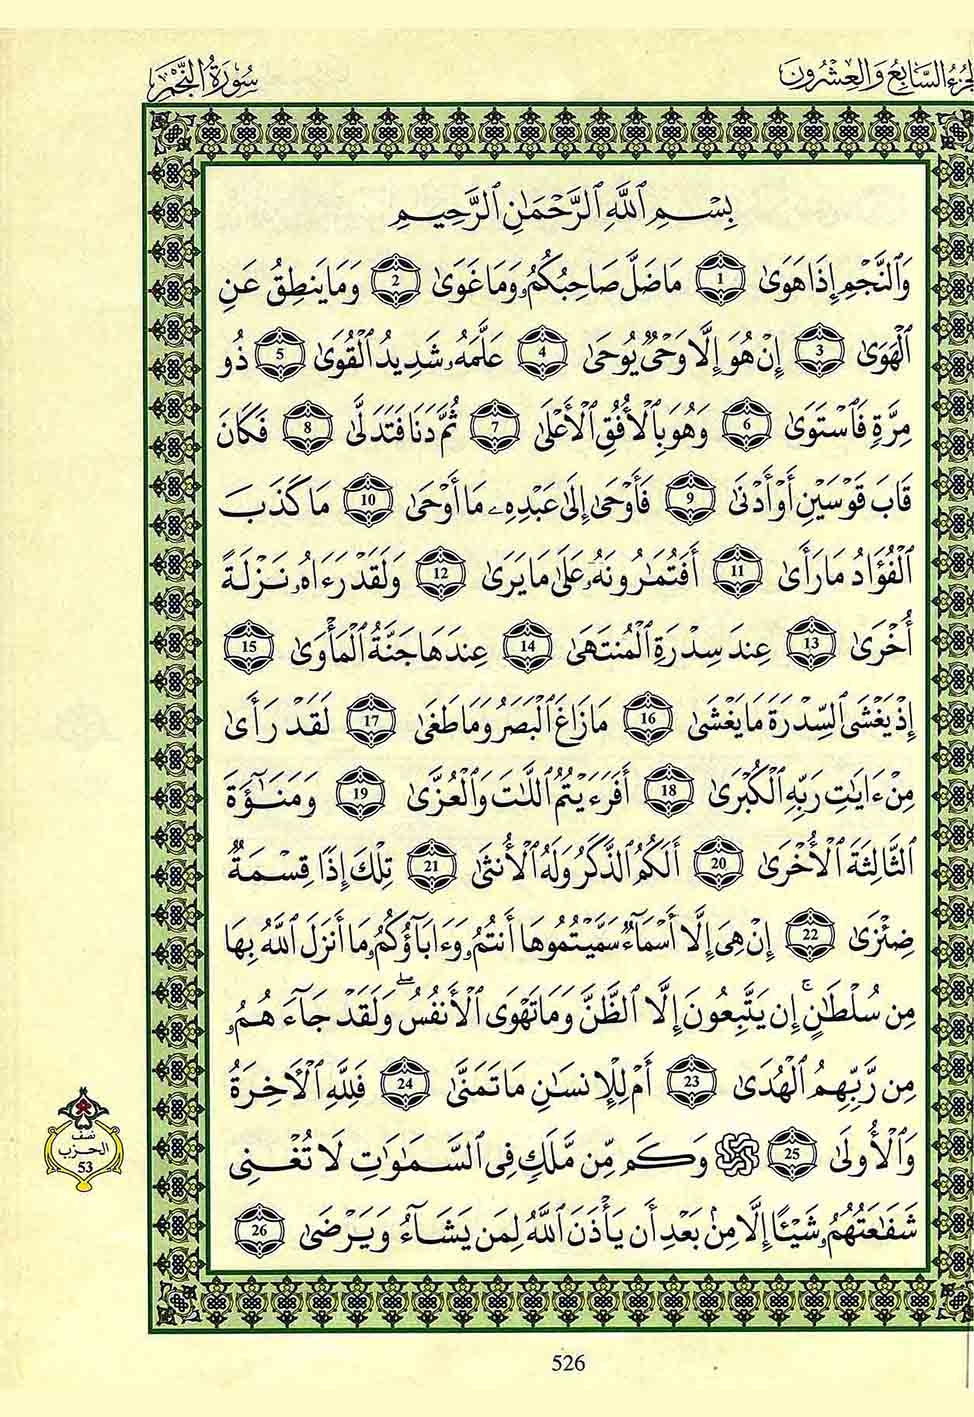 الجزء السابع والعشرون
سورة النجم
بِسْمِ ٱللَّهِ ٱلرَّحْمَٰنِ ٱلرَّحِيمِ
وَٱلنَّجْمِ إِذَا هَوَىٰ 1 مَا ضَلَّ صَاحِبُكُمُۥ وَمَا غَوَىٰ 2 وَمَا يَنطِقُ عَنِ
ٱلْهَوَىٰ 3 إِنْ هُوَ إِلَّا وَحْىٌ يُوحَىٰ 4 عَلَّمَهُۥ شَدِيدُ ٱلْقُوَىٰ 5 ذُو
مِرَّةٍ فَٱسْتَوَىٰ 6 وَهُوَ بِٱلْأُفُقِ ٱلْأَعْلَىٰ 7 ثُمَّ دَنَا فَتَدَلَّىٰ 8 فَكَانَ
قَابَ قَوْسَيْنِ أَوْ أَدْنَىٰ 9 فَأَوْحَىٰ إِلَىٰ عَبْدِهِۦ مَا أَوْحَىٰ 10 مَا كَذَبَ
ٱلْفُؤَادُ مَا رَأَىٰ 11 أَفَتُمَٰرُونَهُۥ عَلَىٰ مَا يَرَىٰ 12 وَلَقَدْ رَءَاهُ نَزْلَةً
أُخْرَىٰ 13 عِندَ سِدْرَةِ ٱلْمُنتَهَىٰ 14 عِندَهَا جَنَّةُ ٱلْمَأْوَىٰ 15
إِذْ يَغْشَى ٱلسِّدْرَةَ مَا يَغْشَىٰ 16 مَا زَاغَ ٱلْبَصَرُ وَمَا طَغَىٰ 17 لَقَدْ رَأَىٰ
مِنْ ءَايَٰتِ رَبِّهِ ٱلْكُبْرَىٰ 18 أَفَرَءَيْتُمُ ٱللَّٰتَ وَٱلْعُزَّىٰ 19 وَمَنَٰٓؤةَ
ٱلثَّالِثَةَ ٱلْأُخْرَىٰ 20 أَلَكُمُ ٱلذَّكَرُ وَلَهُ ٱلْأُنثَىٰ 21 تِلْكَ إِذًا قِسْمَةٌ
ضِئْزَىٰ 22 إِنْ هِىَ إِلَّا أَسْمَآءٌ سَمَّيْتُمُوهَا أَنتُمُۥ وَءَابَآؤُكُمُۥ مَا أَنزَلَ ٱللَّهُ بِهَا
مِن سُلْطَٰنٍ ۚ إِن يَتَّبِعُونَ إِلَّا ٱلظَّنَّ وَمَا تَهْوَى ٱلْأَنفُسُ ۖ وَلَقَدْ جَآءَهُمُۥ
مِن رَّبِّهِمُ ٱلْهُدَىٰ 23 أَمْ لِلْإِنسَٰنِ مَا تَمَنَّىٰ 24 فَلِلَّهِ ٱلْـَٔاخِرَةُ
وَٱلْأُولَىٰ 25 ۞ وَكَم مِّن مَّلَكٍ فِى ٱلسَّمَٰوَٰتِ لَا تُغْنِى
شَفَٰعَتُهُمُۥ شَيْـًٔا إِلَّا مِنۢ بَعْدِ أَن يَأْذَنَ ٱللَّهُ لِمَن يَشَآءُ وَيَرْضَىٰ 26
نصف
الحزب
53
526